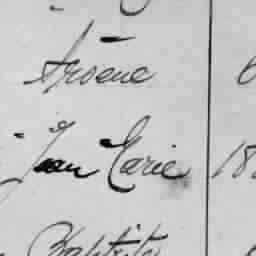 Arsène
Jean Marie 18
Baptiste